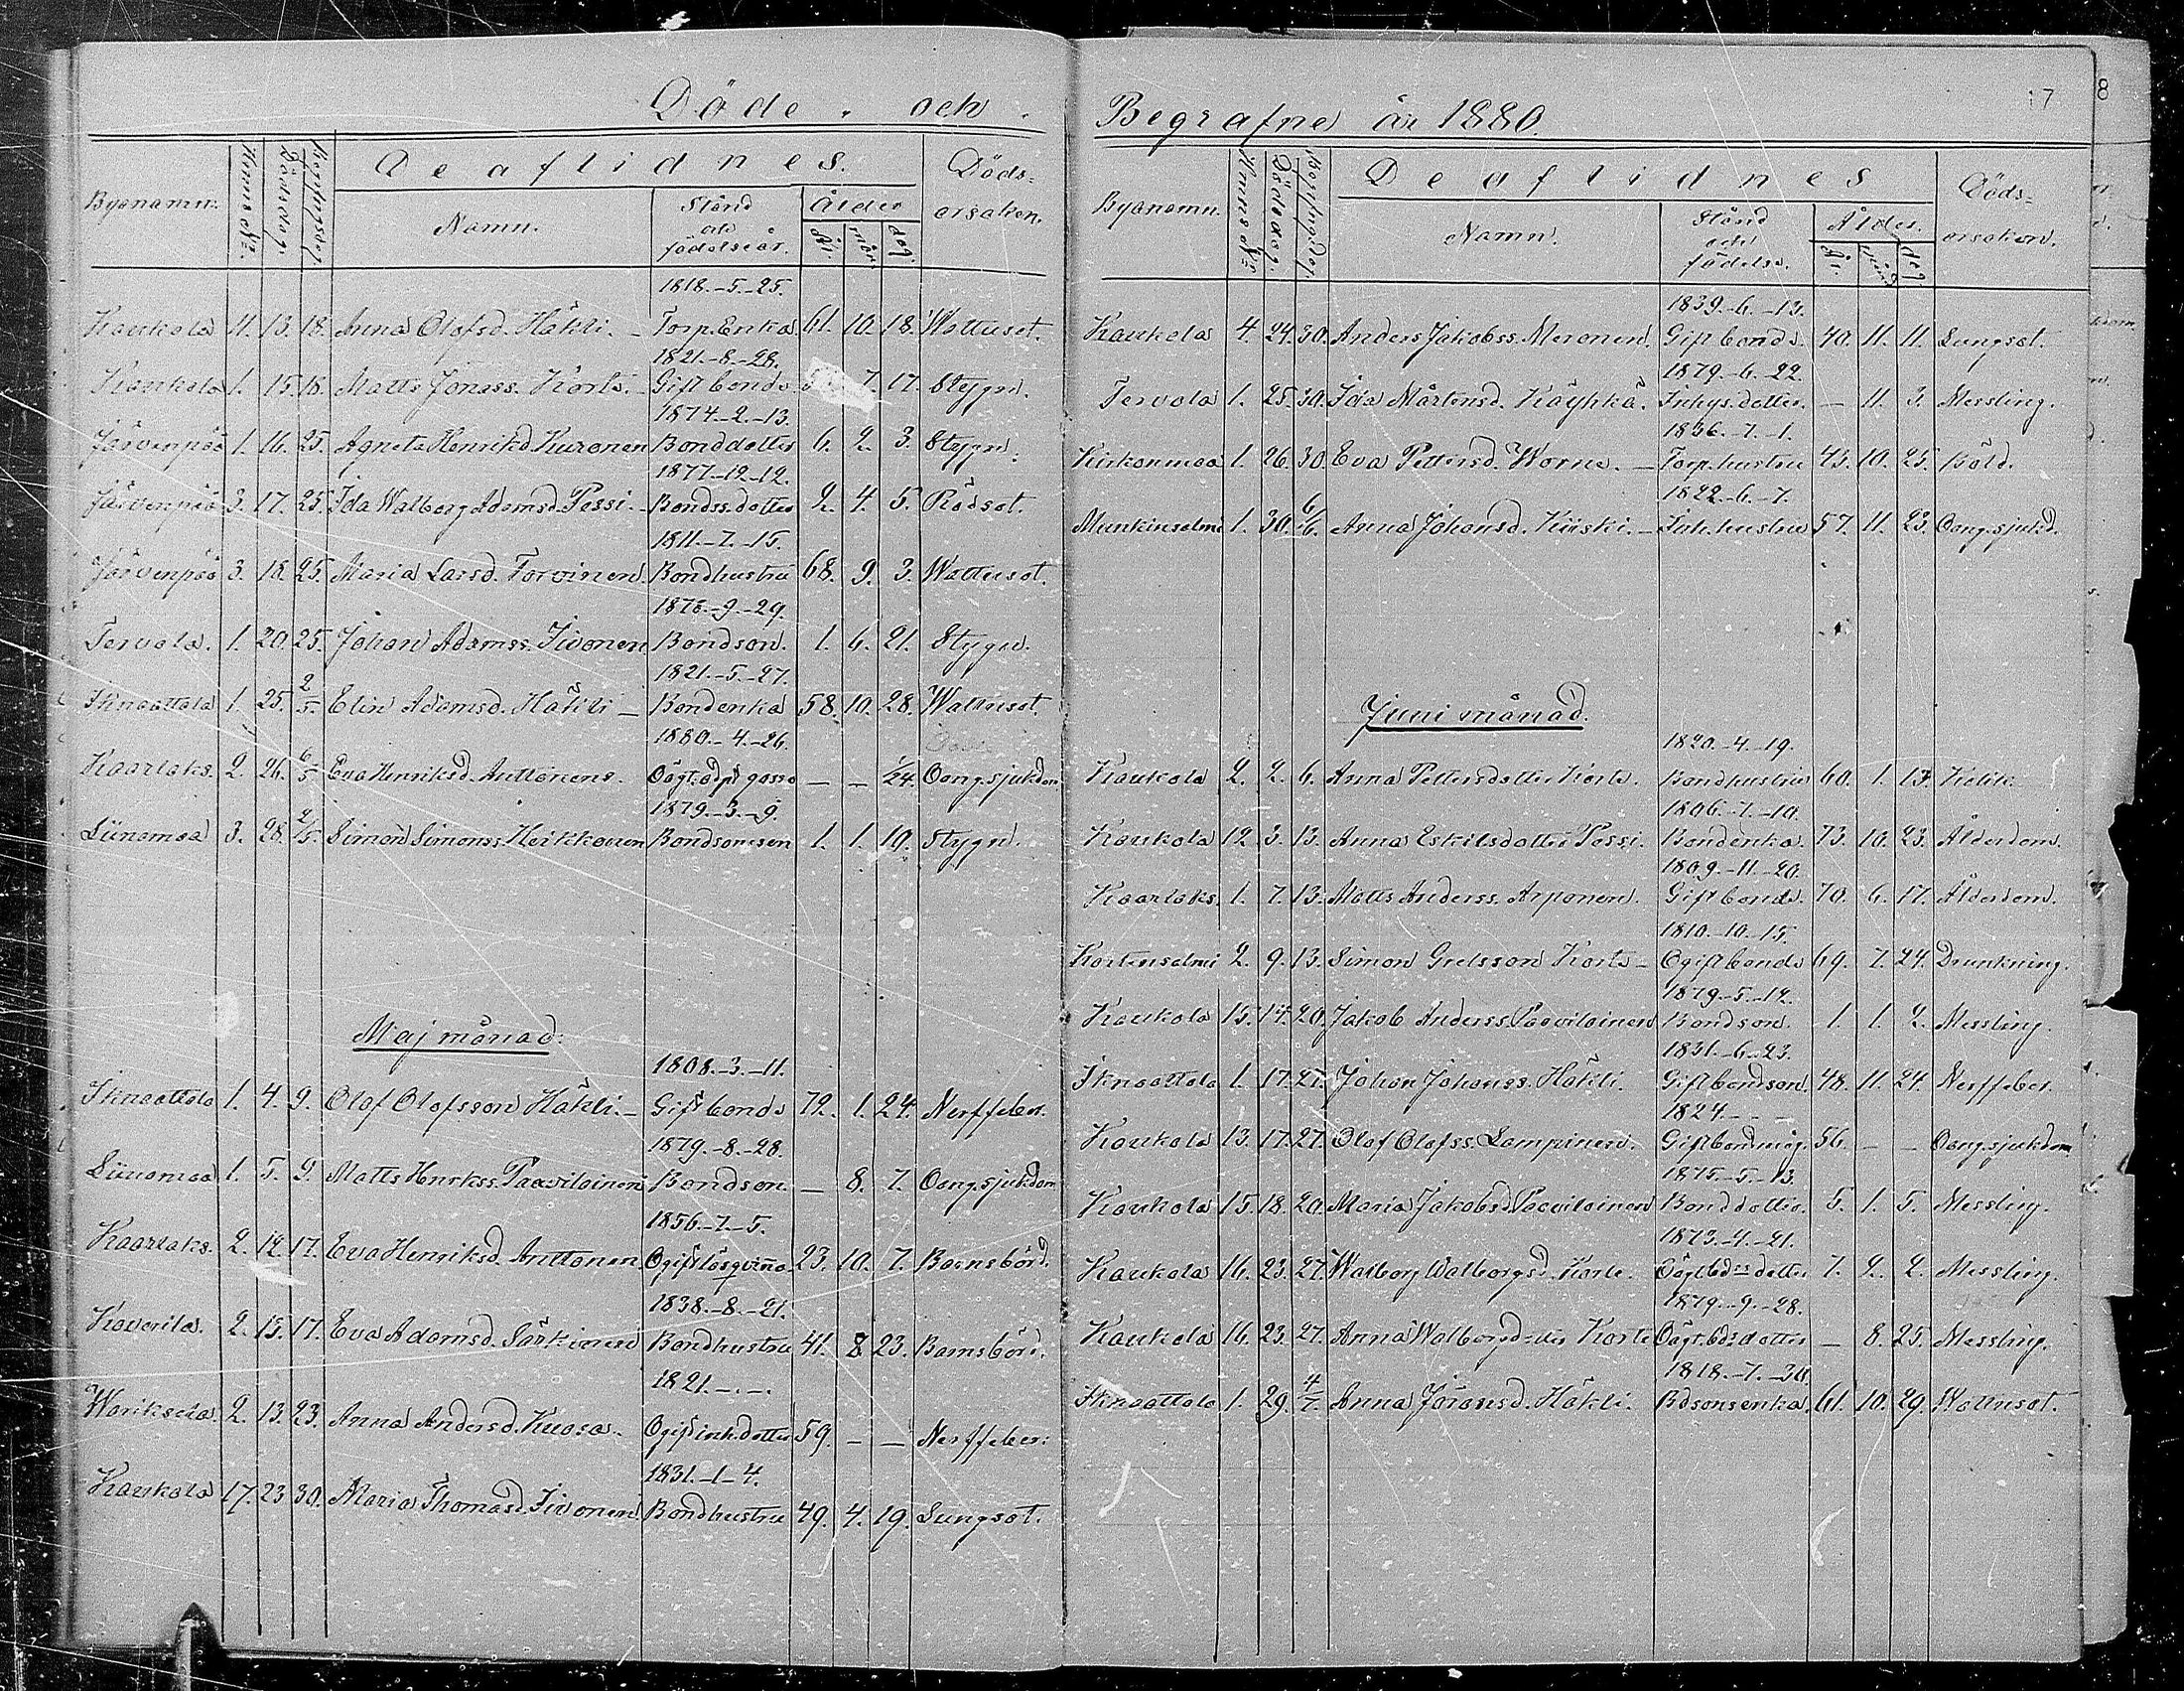 Döde och
Byanamn. Hemms No. Dödsdag. Begrafningsdag. De aflidnes. Döds-orsaken.
Namn. Stånd och födelseår. Ålder
år. mån. dag.
1818.-5.-25.
Kaukola 11. 13. 18. Anna Olofsd. Häkli. - Torp. Enka. 61. 10. 18. Wattusot.
1821.-8.-28.
Kaukola 1. 15. 18. Matts Jonass. Korte. - Gift bonde 7. 17. Stygn.
1874.-2.-13.
Järvenpää 1. 16. 25. Agneta Henriksd Kuronen Bonddotter 6. 2. 3. Stygn.
1877.-12.-12.
Järvenpää 3. 17. 25. Ida Walborg Adamsd. Pessi. - Bondss. dotter 2. 4. 5. Rödsot.
1811.-7.-15.
Järvenpää 3. 18. 25. Maria Larsd. Torvinen. Bondhustru 68. 9. 3. Wattusot.
1878.-9.-29.
Tervola. 1. 20. 25. Johan Adamss. Iivonen Bondson. 1. 6. 21. Stygn.
1821.-5.-27.
Iknaattala 1. 25. 2/5. Elin Adamsd. Häkli - Bondenka 58. 10. 28. Wattusot.
1880.-4.-26.
Kaarlaks. 2. 26. 6/5 Eva Henriksd. Anttonens. Oägt. odöpt gosse - - 1/24. Oang. sjukdom
1879.-3.-9.
Liinamaa 3. 28. 2/5. Simon Simonss. Heikkonen Bondsonsson 1. 1. 19. Stygn.
Maj månad.
1808.-3.-11.
Iknaattala 1. 4. 9. Olof Olofsson Häkli. - Gift bonde 72. 1. 24. Nerffeber.
1879.-8.-28.
Liinamaa 1. 5. 9. Matts Henrkss. Paavilainen Bondson. - 8. 7. Oang. sjukdom
1856.-7.-5.
Kaarlaks. 2. 12. 17. Eva Henriksd. Anttonen Ogift lösqvinna 23. 10. 7. Barnsbörd.
1838.-8.-21.
Koverila. 2. 13. 17. Eva Adamsd. Särkinen Bondhustru 41. 8. 23. Barnsbörd.
1821.-.-.
Warikselä. 2. 13. 23. Anna Andersd. Kuosa. Ogift inh. dotter 59. - - Nerffeber.
1831.-1-4.
Kaukola 17. 23 30. Maria Thomasd. Iivonen Bondhustru 49. 4. 19. Lungsot.
Begrafne år 1880.
17
8
Byanamn. Hemms No Dödsdag. Begrafningsdag. De aflidnes Döds-orsaken.
Namn. Stånd och födelse. Ålder.
år. mån. dag
1839.-6.-13.
Kaukola 4. 24. 30. Anders Jakobss. Meronen. Gift bonde. 40. 11. 11. Lungsot.
1879.-6.-22.
Tervola 1. 25. 30. Ida Mårtensd. Käyhkä. Inhys. dotter. - 11. 3. Messling.
1836.-7.-1.
Kirkonmaa 1. 26. 30. Eva Pettersd. Worne. - Torp. hustru 43. 10. 25. Böld.
1822.-6.-7.
Mankinsalmi 1. 30. 6/6. Anna Johansd. Kiiski. - Inh. hustru 57. 11. 23. Oang. sjukd.
Juni månad.
1820.-4.-19.
Kaukola 2. 2. 6. Anna Pettersdotter Korte. Bondhustru 60. 1. 13. Kolik.
1806.-7.-10.
Kaukola 12 3. 13. Anna Eskilsdotter Pessi. Bondenka. 73. 10. 23. Ålderdom.
1809.-11.-20.
Kaarlaks. 1. 7. 13. Matts Anderss. Arponen. Gift bonde. 70. 6. 17. Ålderdom.
1810.-10.-15.
Kortensalmi 2. 9. 13. Simon Grelsson Korte - Ogift bonde 69. 7. 24. Drunkning.
1879.-5.-12.
Kaukola 15. 14. 20. Jakob Anderss. Paavilainen Bondson. 1. 1. 2. Messling.
1831.-6.-23.
Iknaattala 1. 17. 27. Johan Johanss. Häkli. Gift bondson. 48. 11. 24. Nerffeber.
1824.- - -
Kaukola 13. 17. 27. Olof Olofss. Lampinen. Gift bondmåg. 56. - - Oang. sjukdom
1875.-5.-13.
Kaukola 15. 18. 20. Maria Jakobsd. Paavilainen Bonddotter. 5. 1. 5. Messling.
1873.-4.-21.
Kaukola 16. 23. 27. Walborg Walborgsd. Korte. Oägt. bdss dotter 7. 2. 2. Messling.
1879.-9.-28.
Kaukola 16. 23. 27. Anna Walborgsd:tter Korte Oägt. bds dotter - 8. 25. Messling.
1818.-7.-30.
Iknaattala 1. 29. 4/7. Anna Jöransd. Häkli. Bdsonsenka. 61. 10. 29. Wattusot.